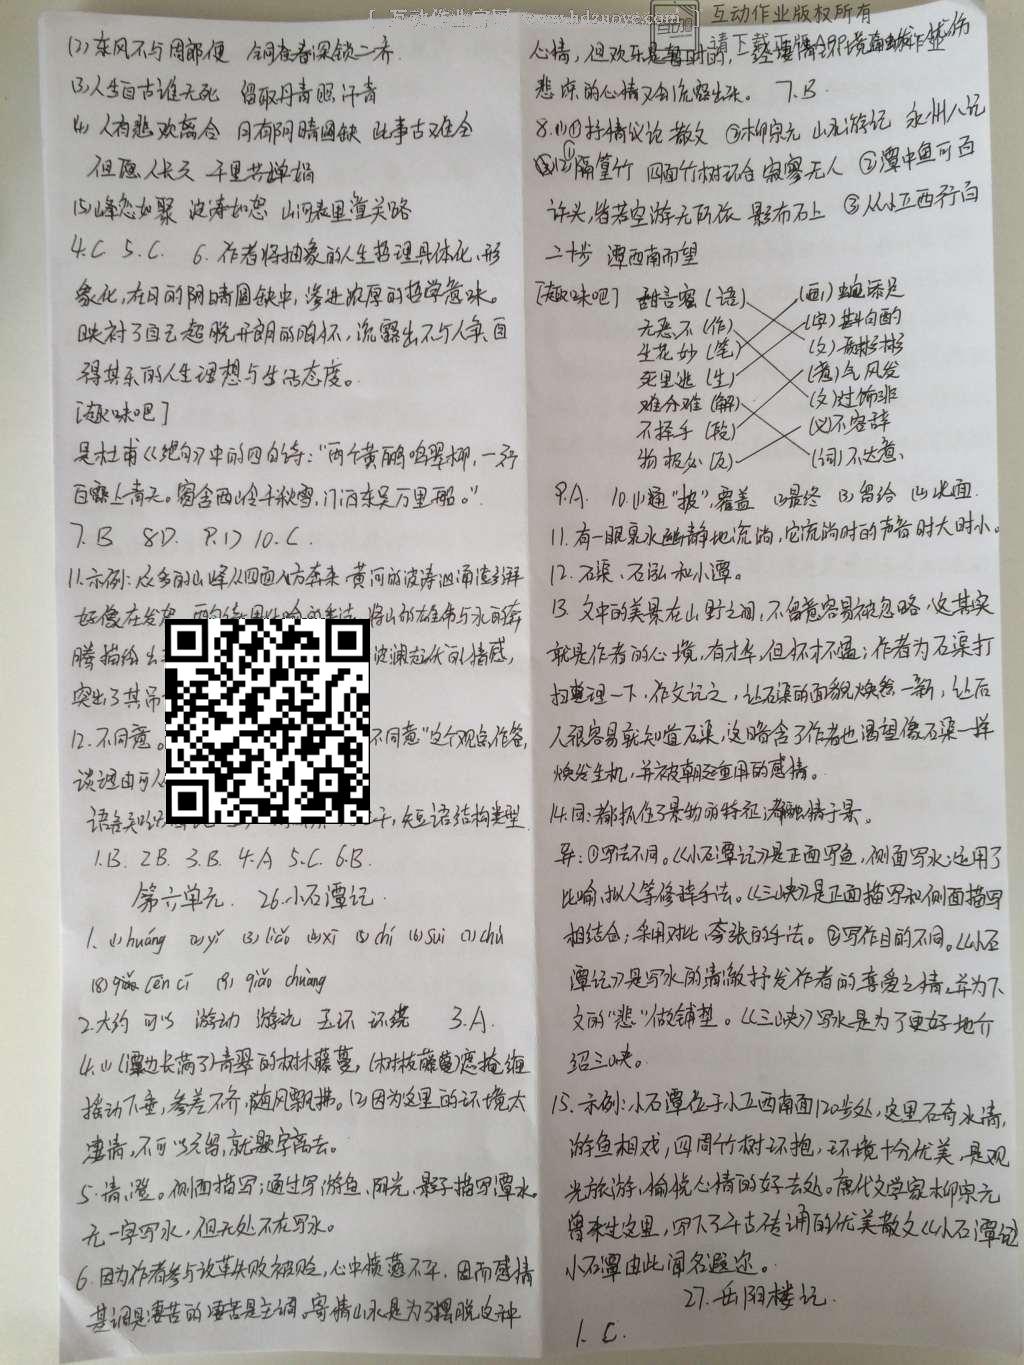 互动作业官网 www.hdzuoye.com
互动作业版权所有
请下载正版APP
(2)东风不与周郎便 铜雀春深锁二乔
(3)人生自古谁无死 留取丹青照汗青
(4) 人有悲欢离合 月有阴晴圆缺 此事古难全
但愿人长久 千里共婵娟
(5)峰峦如聚 波涛如怒 山河表里潼关路
4.C 5.C. 6.作者将抽象的人生哲理具体化、形
象化,在月的阴晴圆缺中,渗进浓厚的哲学意味。
映衬了自己超脱开朗的胸怀,流露出不与人争、自
得其乐的人生理想与生活态度。
[趣味吧]
是杜甫《绝句》中的四句诗:“两个黄鹂鸣翠柳,一行
白鹭上青天。窗含西岭千秋雪,门泊东吴万里船。”
7.B 8D. 9.D 10.C.
11.示例:众多的山峰从四面八方奔来,黄河的波涛汹涌澎湃
好像在发怒
腾描绘出 波澜起伏的情感,
突出了其吊
12.不同意。 不同意”这个观点作答,
谈理由可
语 短语结构类型
1.B. 2B. 3.B. 4.A 5.C. 6.B.
第六单元. 26.小石潭记.
1. (1)huáng (2)yǐ (3)liǎo (4)xī (5)chí (6)suì (7)chú
(8) cēn cī (9) qiǎo chuàng
2.大约 可以 游动 游玩 玉环 环绕 3.A.
4.(1)(潭边长满了)青翠的树木藤蔓,(树枝藤蔓)遮掩缠
摇动下垂,参差不齐,随风飘拂。(2)因为这里的环境太
凄清,不可以久留,就题字离去。
5.清澄。侧面描写;通过写游鱼、阳光、影子描写潭水。
无一字写水,但无处不在写水。
6.因为作者参与改革失败被贬,心中愤懑不平,因而感情
基调是凄苦的,凄苦是主调。寄情山水是为了摆脱这种
心情,但欢乐是暂时的,一经凄清环境 忧伤
悲凉的心情又会流露出来。 7.B.
8.(1)①抒情议论 散文 ②柳宗元 山水游记 永州八记
(2)①隔篁竹 四面竹树环合 寂寥无人 ②潭中鱼可百
许头,皆若空游无所依 影布石上 ③从小丘西行百
二十步 潭西南而望
[趣味吧] 甜言蜜(语) (画)蛇添足
无恶不(作) (字)斟句酌
生花妙(笔) (文)质彬彬
死里逃(生) (意)气风发
难分难(解) (文)过饰非
不择手(段) (义)不容辞
物极必(反) (词)不达意
9.A. 10.(1)通“披”,覆盖 (2)最终 (3)留给 (4)水面.
11.有一眼泉水幽静地流淌,它流淌时的声音时大时小。
12.石渠、石泓和小潭。
13.文中的美景在山野之间,不留意容易被忽略,这其实
就是作者的心境,有才华,但怀才不遇;作者为石渠打
扫整理一下,作文记之,让石渠的面貌焕然一新,让后
人很容易就知道石渠,这暗含了作者也渴望像石渠一样
焕发生机,并被朝廷重用的感情。
14.同:都抓住了景物的特征;都融情于景。
异:①写法不同。《小石潭记》是正面写鱼,侧面写水;运用了
比喻、拟人等修辞手法。《三峡》是正面描写和侧面描写
相结合;采用对比、夸张的手法。②写作目的不同。《小石
潭记》是写水的清澈抒发作者的喜爱之情,并为下
文的“悲”做铺垫。《三峡》写水是为了更好地介
绍三峡。
15.示例:小石潭位于小丘西南面120步处,这里石奇水清,
游鱼相戏,四周竹树环抱,环境十分优美,是观
光旅游,愉悦心情的好去处。唐代文学家柳宗元
曾来过这里,写下了千古传诵的优美散文《小石潭记》
小石潭由此闻名遐迩。
27.岳阳楼记.
1. C.